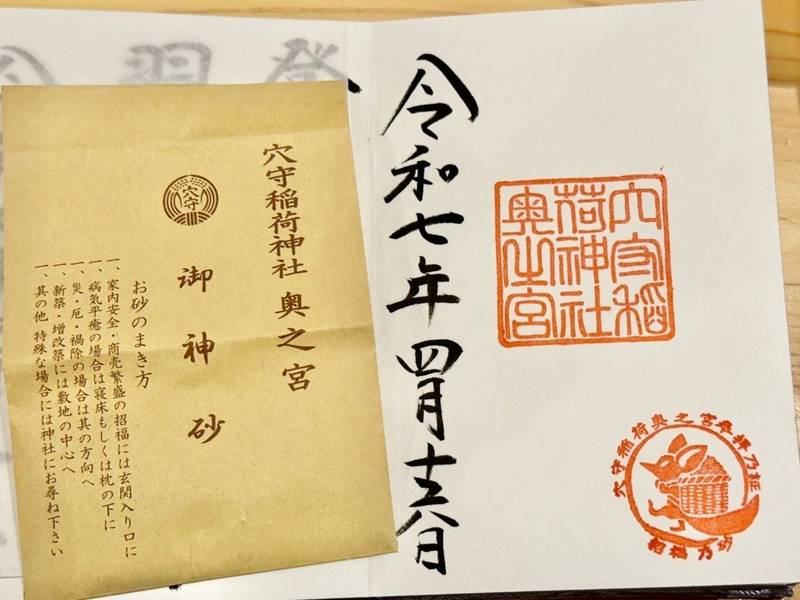 令和七年 四月十六日
穴守稲
荷神社
奥之宮
穴守稲荷奥之宮参拝乃証
招福乃砂
穴守稲荷神社 奥之宮
穴守
御神砂
お砂のまき方
一、家内安全・商売繁盛の招福には玄関入り口に
一、病気平癒の場合は寝床もしくは枕の下に
一、災・厄・禍除の場合は其の方向へ
一、新築・増改築には敷地の中心へ
一、其の他 特殊な場合には神社にお尋ね下さい